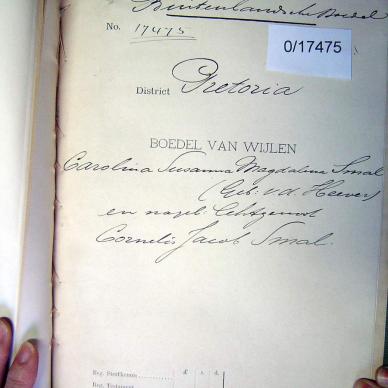 Buitenlandsche Boedel
No. 17475
0/17475
District Pretoria
BOEDEL VAN WIJLEN
Carolina Susanna Magdalena Smal
(Geb: v.d. Heever)
en nagel: Echtgenoot
Cornelis Jacob Smal.
£ s. d.
Reg. Sterfkennis
Reg. Testament